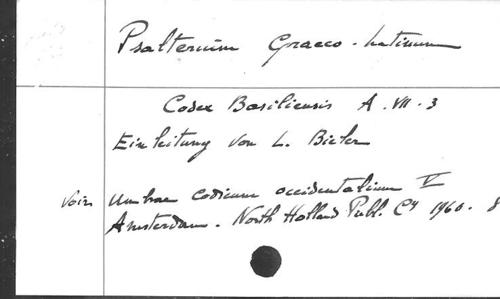 Psalterium Graeco-Latinum
Codex Basiliensis A. VII. 3
Einleitung von L. Bieler
voir Umbrae codicum occidentalium V
Amsterdam. North Holland Publ. Cy 1960. 8